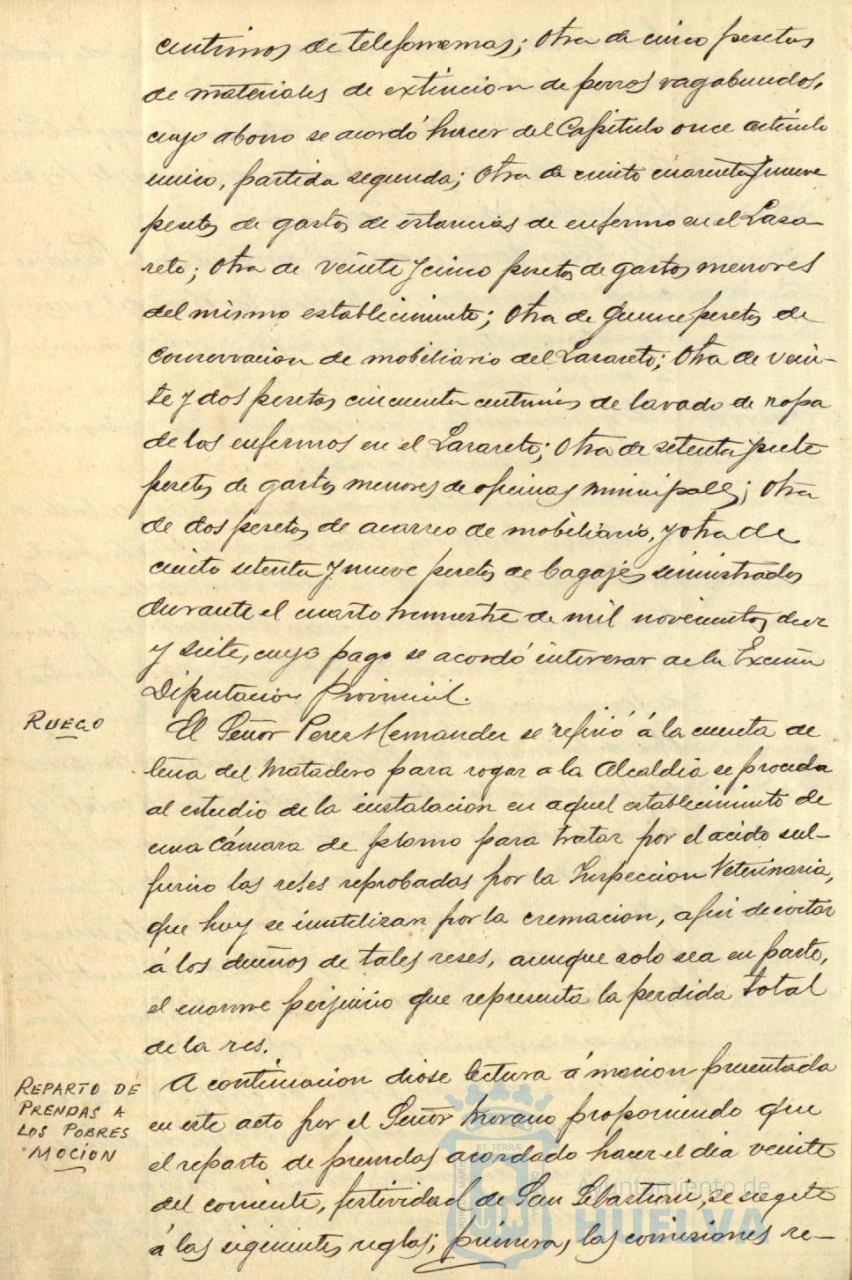 centimos de telefonemas; Otra de cinco pesetas
de materiales de extincion de perros vagabundos,
cuyo abono se acordó hacer del Capitulo once articulo
unico, partida segunda; Otra de ciento cuarenta y nueve
pesetas de gastos de estancias de enfermo en el Laza-
reto; Otra de veinte y cinco pesetas de gastos menores
del mismo establecimiento; Otra de quince pesetas de
conservacion de mobiliario del Lazareto; Otra de vein-
te y dos pesetas cincuenta centimos de lavado de ropa
de los enfermos en el Lazareto; Otra de setenta y siete
pesetas de gastos menores de oficinas municipales; Otra
de dos pesetas de acarreo de mobiliario, y otra de
ciento setenta y nueve pesetas de bagajes suministrados
durante el cuarto trimestre de mil novecientos diez
y siete, cuyo pago se acordó interesar de la Excma
Diputacion Provincial.
RUEGO
El Señor Perez Hernandez se refirió á la cuenta de
leña del Matadero para rogar a la Alcaldia se proceda
al estudio de la instalacion en aquel establecimiento de
una Cámara de plomo para tratar por el acido sul-
furico las reses reprobadas por la Inspeccion Veterinaria,
que hoy se inutilizan por la cremacion, a fin de evitar
á los dueños de tales reses, aunque solo sea en parte,
el enorme perjuicio que representa la perdida total
de la res.
REPARTO DE
PRENDAS A
LOS POBRES
MOCION
A continuacion diose lectura á mocion presentada
en este acto por el Señor Morano proponiendo que
el reparto de prendas acordado hacer el dia veinte
del corriente, festividad de San Sebastian, se sugete
á las siguientes reglas; primera, las comisiones re-
Ayuntamiento de
HUELVA